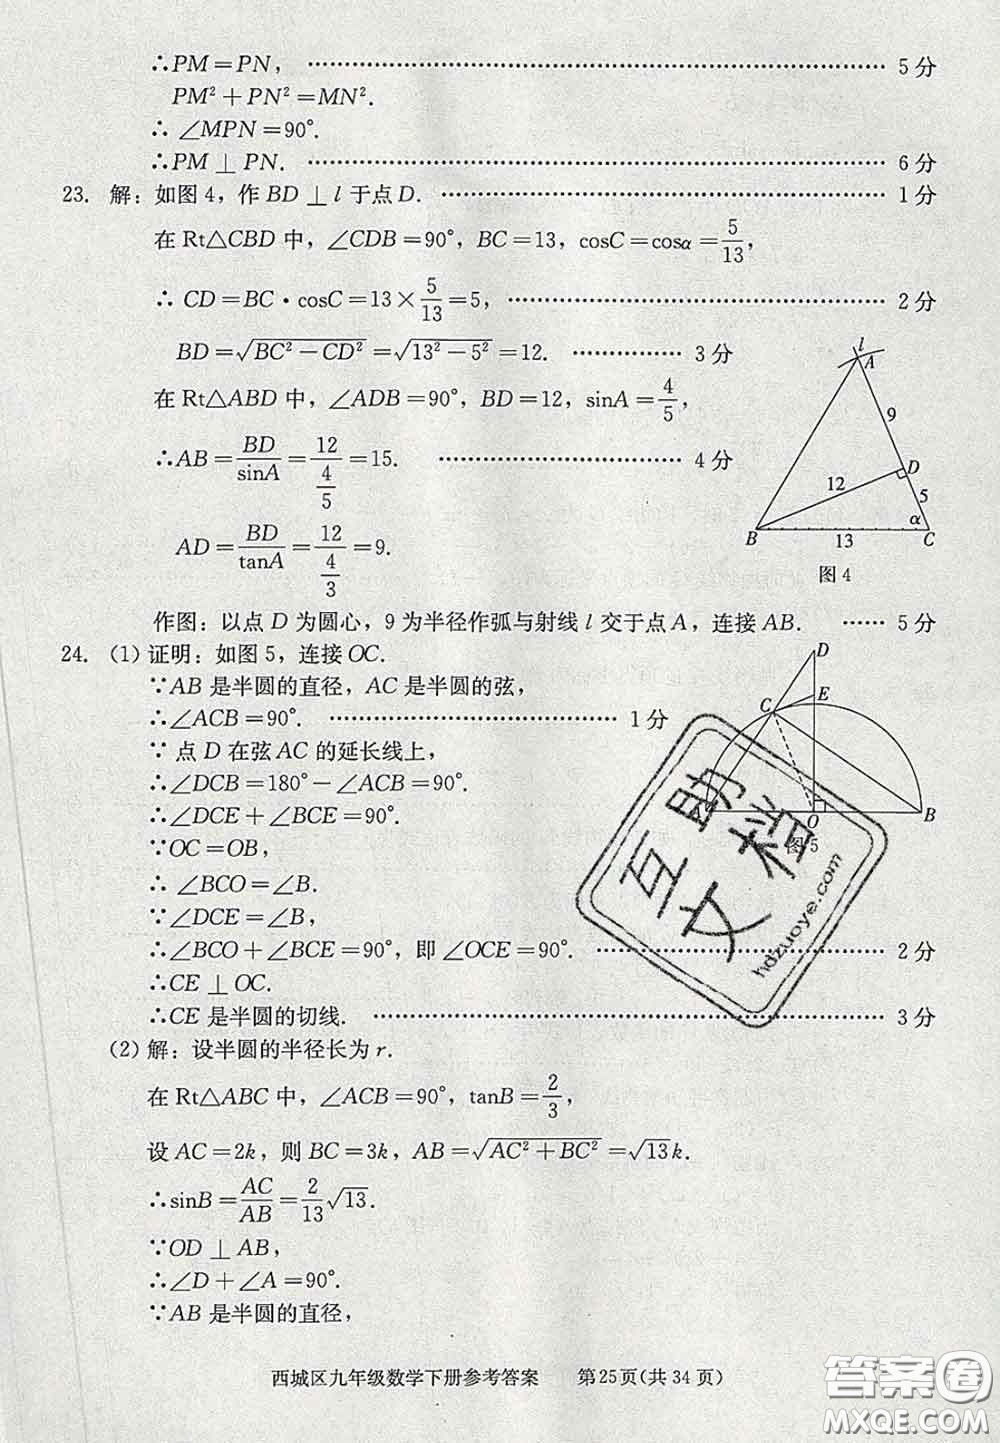 ∴PM=PN, …… 5分
PM²+PN²=MN².
∴ ∠MPN=90°.
∴PM⊥PN. …… 6分
23. 解：如图4，作BD⊥l于点D. …… 1分
在Rt△CBD中，∠CDB=90°，BC=13，cosC=cosα=5/13，
∴ CD=BC·cosC=13×5/13=5， …… 2分
BD=√(BC²-CD²)=√(13²-5²)=12. …… 3分
在Rt△ABD中，∠ADB=90°，BD=12，sinA=4/5，
∴AB=BD/sinA=12/(4/5)=15. …… 4分
AD=BD/tanA=12/(4/3)=9.
l
A
9
D
12
5
α
B
13
C
图4
作图：以点D为圆心，9为半径作弧与射线l交于点A，连接AB. …… 5分
24. (1)证明：如图5，连接OC.
∵AB是半圆的直径，AC是半圆的弦，
∴∠ACB=90°. …… 1分
∵ 点D在弦AC的延长线上，
∴∠DCB=180°-∠ACB=90°.
∴∠DCE+∠BCE=90°.
∵OC=OB，
∴ ∠BCO=∠B.
∵∠DCE=∠B，
∴∠BCO+∠BCE=90°，即∠OCE=90°. …… 2分
∴CE⊥OC.
∴CE是半圆的切线. …… 3分
D
E
C
A
O
B
图5
互助
文档
hdzuoye.com
(2)解：设半圆的半径长为r.
在Rt△ABC中，∠ACB=90°，tanB=2/3，
设AC=2k，则BC=3k，AB=√(AC²+BC²)=√13k.
∴sinB=AC/AB=2/13√13.
∵OD⊥AB，
∴∠D+∠A=90°.
∵AB是半圆的直径，
西城区九年级数学下册参考答案 第25页(共34页)
答案圈
MXQE.COM